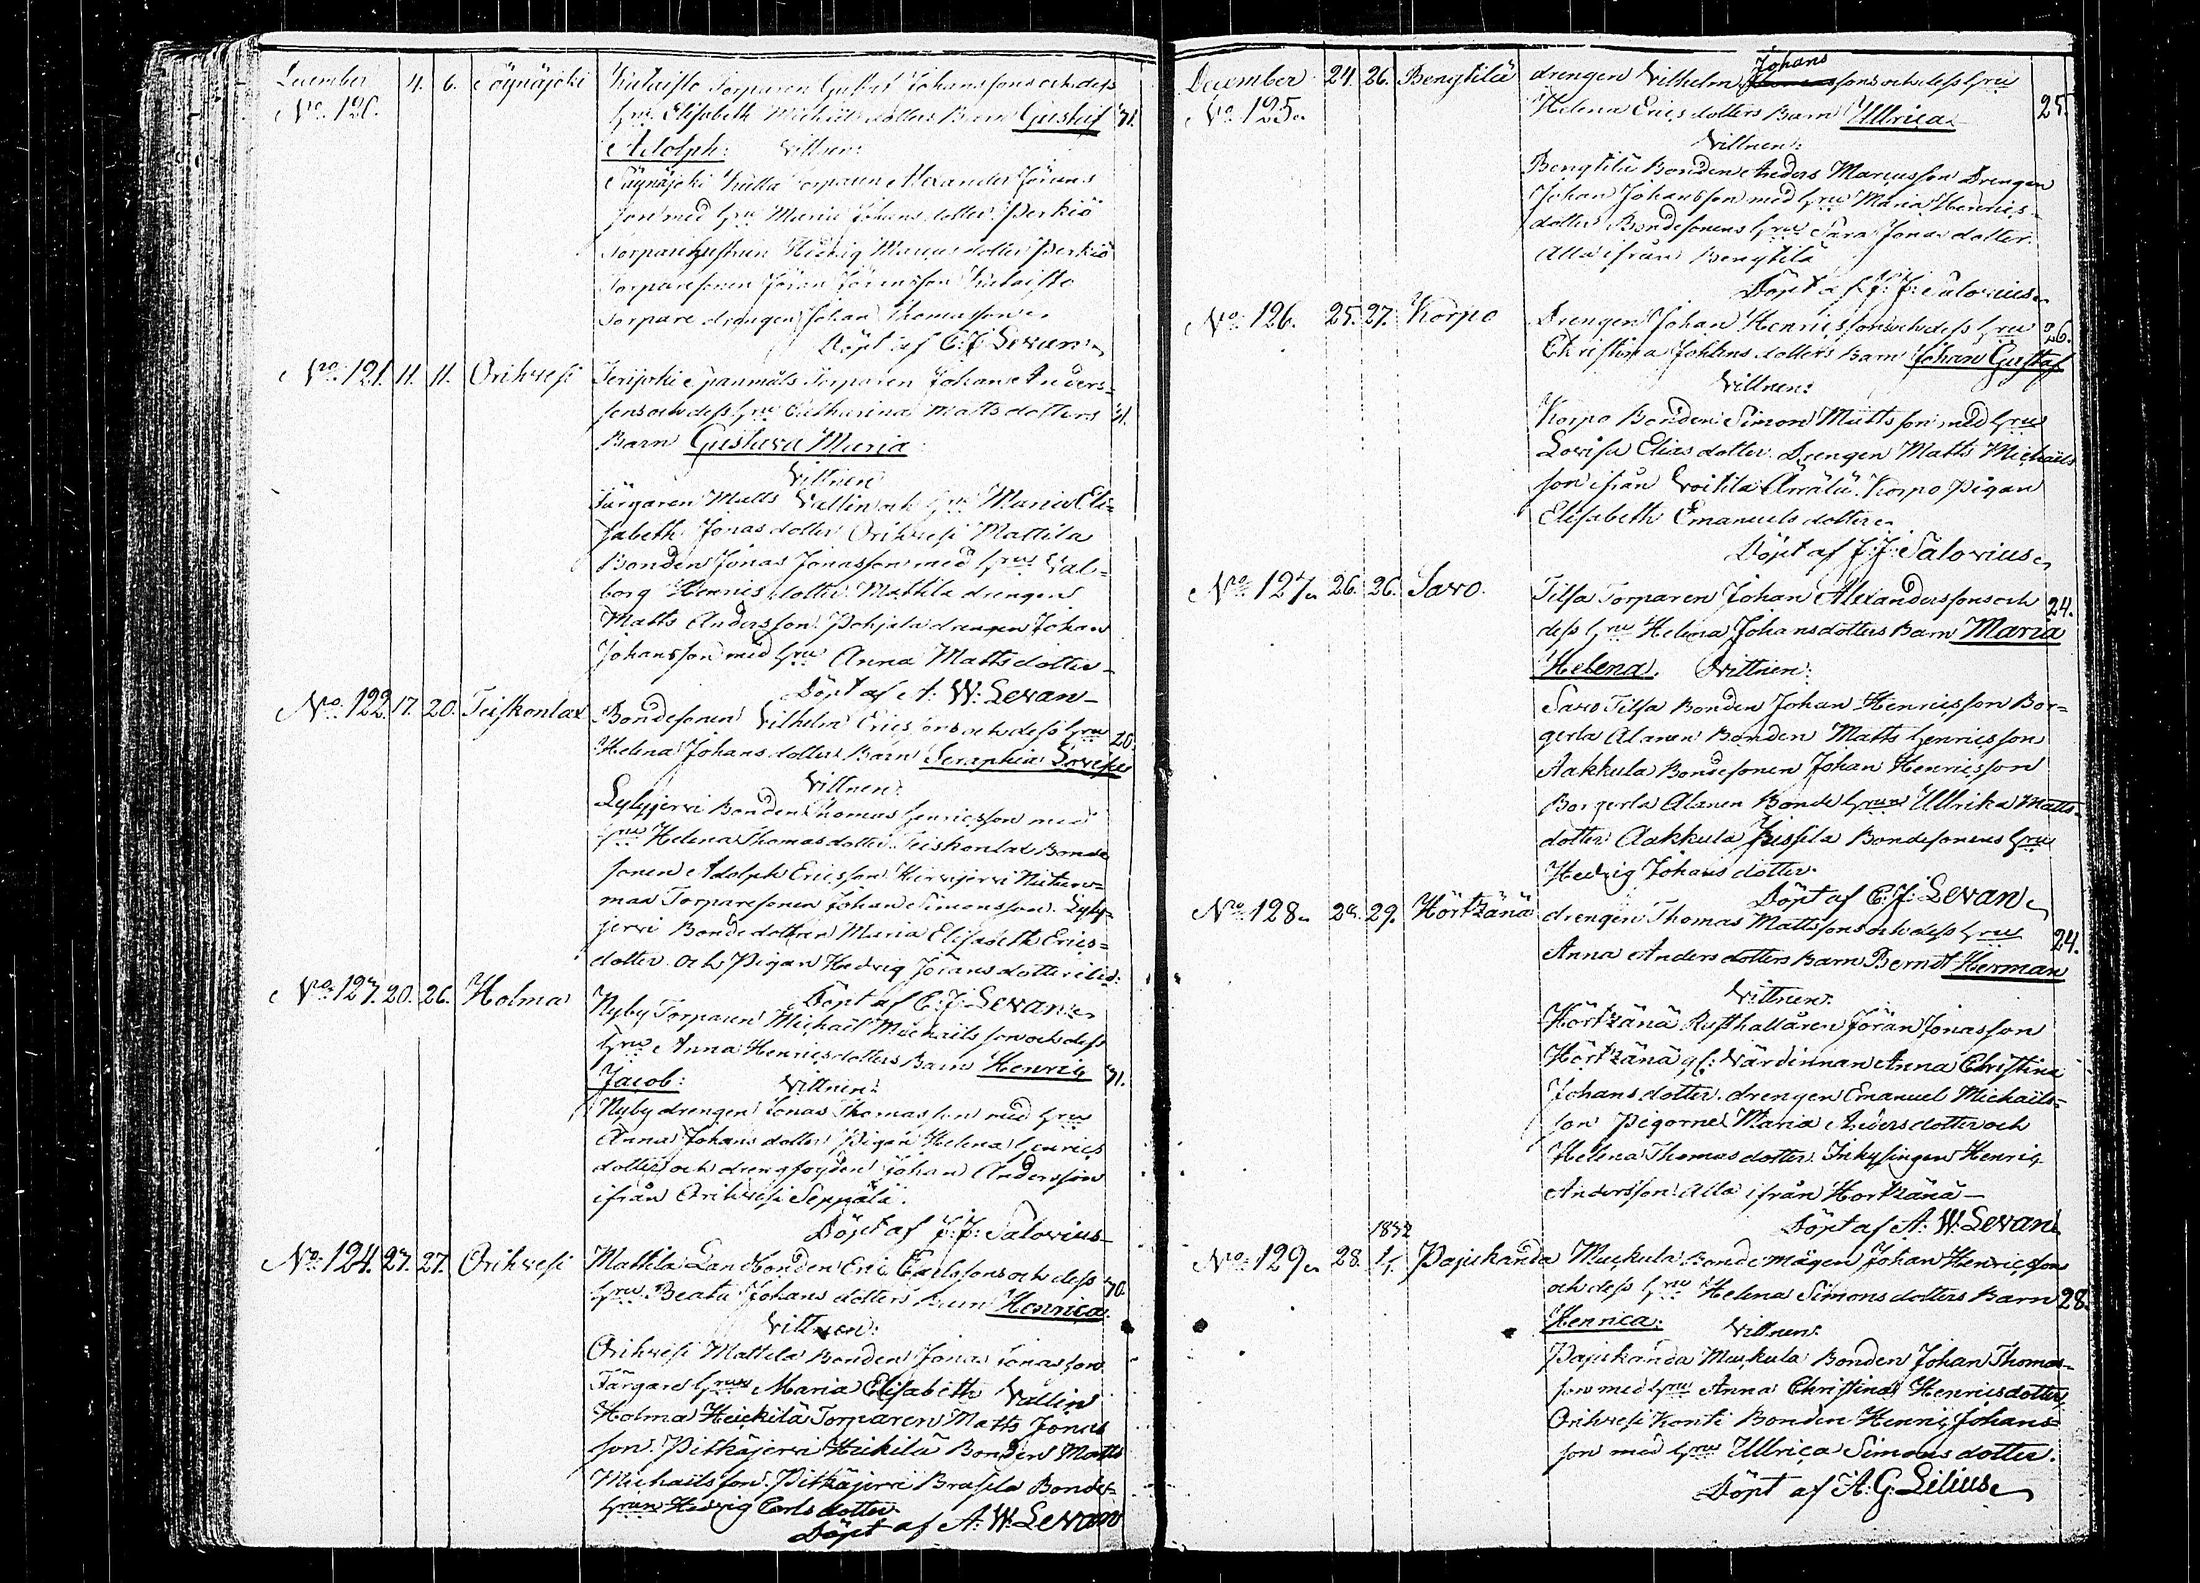 December 4. 6. Töynäjoki Torparen Gustaf Johanssons och dess
No. 120. Hru Elisabeth Michels dotters Barn Gustaf 31.
Adolph: Vittnen:
Töynäjoki Torparen Alexander Jörans
son med Hru Maria Johans dotter Perkiö
Torpare hustrun Hedvig Marcus dotter Perkiö
Torparesonen Jöran Jöransson
Torpare drengen Johan Thomasson.
Döpt af C: J: Levan.
No. 121. 11. 11. Orihvesi Torparen Johan Anders-
sons och dess Hru Catharina Matts dotters 31.
Barn Gustava Maria
Vittnen
Färgaren Matts Vallin och Hru Maria Eli-
sabeth Jonas dotter Orihvesi Mattila
Bonden Jonas Jonasson med Hru Val-
borg Henrics dotter Mattila drengen
Matts Andersson. Pohjala drengen Johan
Johansson med Hru Anna Matts dotter
Döpt af A: W: Levan
No. 122. 17. 20. Teiskonlax Bondesonen Vilhelm Ericssons och dess Hru 20.
Helena Johans dotters Barn Seraphia Lovisa
Vittnen:
Lylyjervi Bonden Thomas Henricsson med
Hru Helena Thomas dotter Teiskonlax Bonde
sonen Adolph Ericsson Hirvijervi
maa Torparesonen Johan Simonsson. Lyly-
jervi Bonde dottren Maria Elisabeth Erics-
dotter och Pigan Hedvig Jörans dotter
Döpt af C: J: Levan
No. 123. 20. 26. Holma Nyby Torparen Michaël Michaëlssons och dess
Hru Anna Henricsdotters Barn Henric 31.
Jacob: Vittnen:
Nyby drengen Jonas Thomasson med Hru
Anna Johans dotter Pigan Helena Henrics
dotter och drengfogden Johan Andersson
ifrån Orihvesi Seppälä.
Döpt af J: J: Salovius
No. 124. 27. 27. Orihvesi Mattila Lan Bonden Eric Carlssons och dess 30.
Hru Beata Johans dotters Barn Henrica.
Vittnen:
Orihvesi Mattila Bonden Jonas Jonasson
Färgare Hrun Maria Elisabeth Vallin
Holma Heickilä Torparen Matts Jonas
son. Pitkäjervi Heikilä Bonden Matts
Michaëlsson. Pitkäjervi Brasila Bonde
Hrun Hedvig Carls dotter
Döpt af A: W: Levan
December 24. 26. Bengtilä drengen Vilhelm Johanssons och dess Hru
No. 125. Helena Erics dotters Barn Ullrica 25.
Vittnen:
Bengtilä Bonden Anders Marcusson Drengen
Johan Johansson med Hru Maria Henrics-
dotter Bondesonens Hru Sara Jonas dotter.
Alla ifrån Bengtilä
Döpt af J: J: Salovius
No. 126. 25. 27. Korpo Drengen Johan Henricssons och dess Hru 26.
Christina Johans dotters Barn Johan Gustaf
Vittnen:
Korpo Bonden Simon Mattsson med Hru
Lovisa Elias dotter. Drengen Matts Michaëls
son ifrån Voitila Korpo Pigan
Elisabeth Emanuels dotter
Döpt af J: J: Salovius
No. 127. 26. 26. Savo. Tilsa Torparen Johan Alexanderssons och 24.
dess Hru Helena Johansdotters Barn Maria
Helena. Vittnen:
Savo Tilsa Bonden Johan Henricsson Bor-
gerla Alanen Bonden Matts Henricsson
Aakkula Bondesonen Johan Henricsson
Borgerla Alanen Bonde Hrun Ullrika Matts-
dotter Aakkula Jussila Bondesonens Hru
Hedvig Johans dotter.
Döpt af C: J: Levan
No. 128. 29. Hörtzänä drengen Thomas Mattssons och dess Hru 24.
Anna Anders dotters Barn Bernt Herman
Vittnen:
Hörtzänä Rusthållaren Jöran Jonasson
Hörtzänä gl: Värdinnan Anna Christina
Johans dotter. drengen Emanuel Michaëls-
son Pigorne Maria Anders dotter och
Helena Thomas dotter. Inhysingen Henric
Andersson. Alla ifrån Hortzänä
Döpt af A: W: Levan
1832
No. 129. 28. 1/1 Pajukanda Muckula Bonde mågen Johan Henricssons
och dess Hru Helena Simons dotters Barn 28.
Henrica: Vittnen:
Pajukanda Muckula Bonden Johan Thomas-
son med Hru Anna Christina Henricsdotter
Orihvesi Konti Bonden Henric Johans-
son med Hru Ullrica Simons dotter.
Döpt af A: G: Lilius